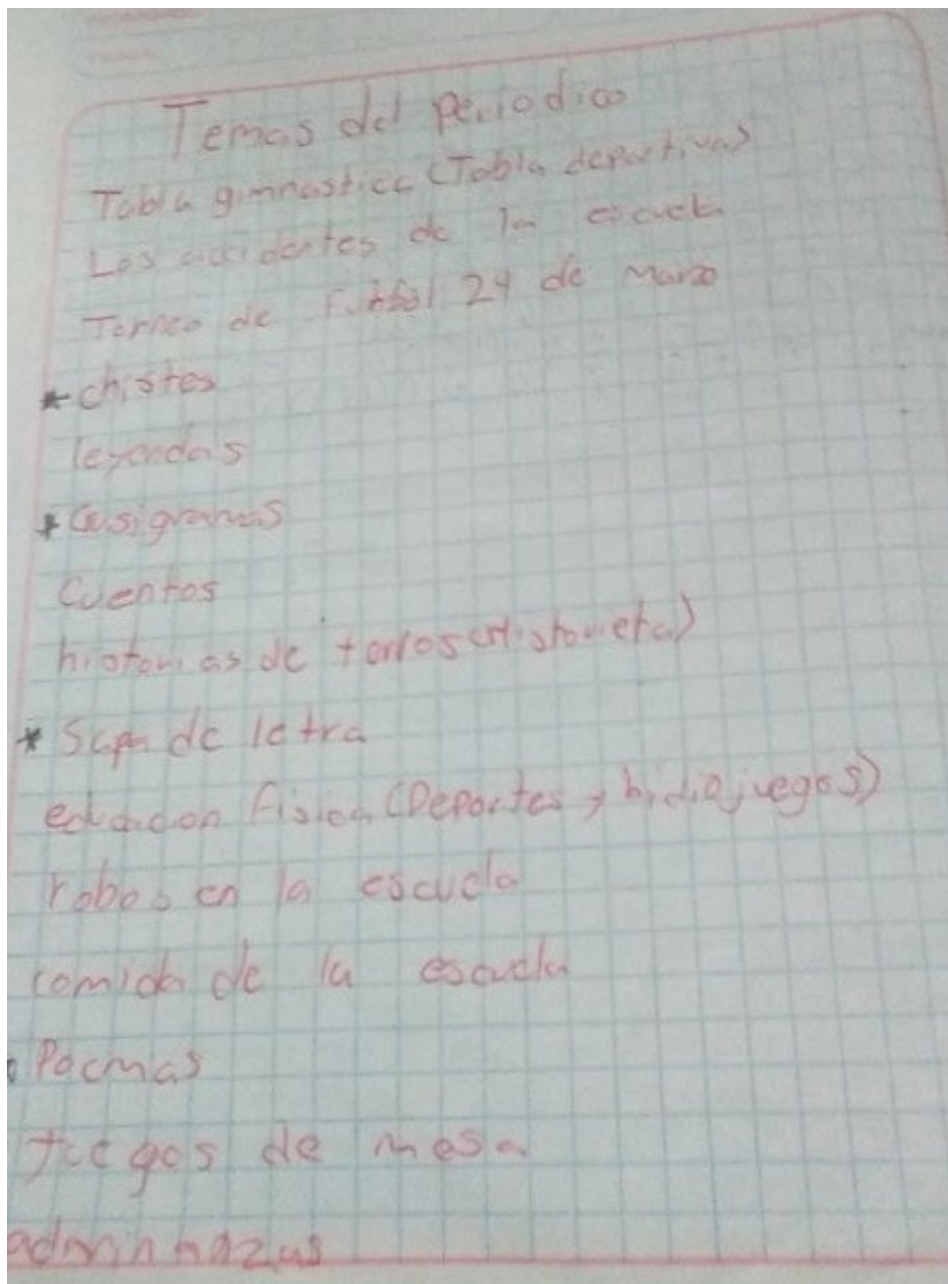 Temas del Periodico
Tabla gimnastica (Tabla deportivas)
Los accidentes de la escuela
Torneo de Futbol 24 de Marzo
* chistes
leyendas
* Cusigramas
Cuentos
historias de (Historieta)
* Sopa de letra
educacion fisica (Deportes y bidiojuegos)
robos en la escuela
comida de la escuela
Poemas
Juegos de mesa